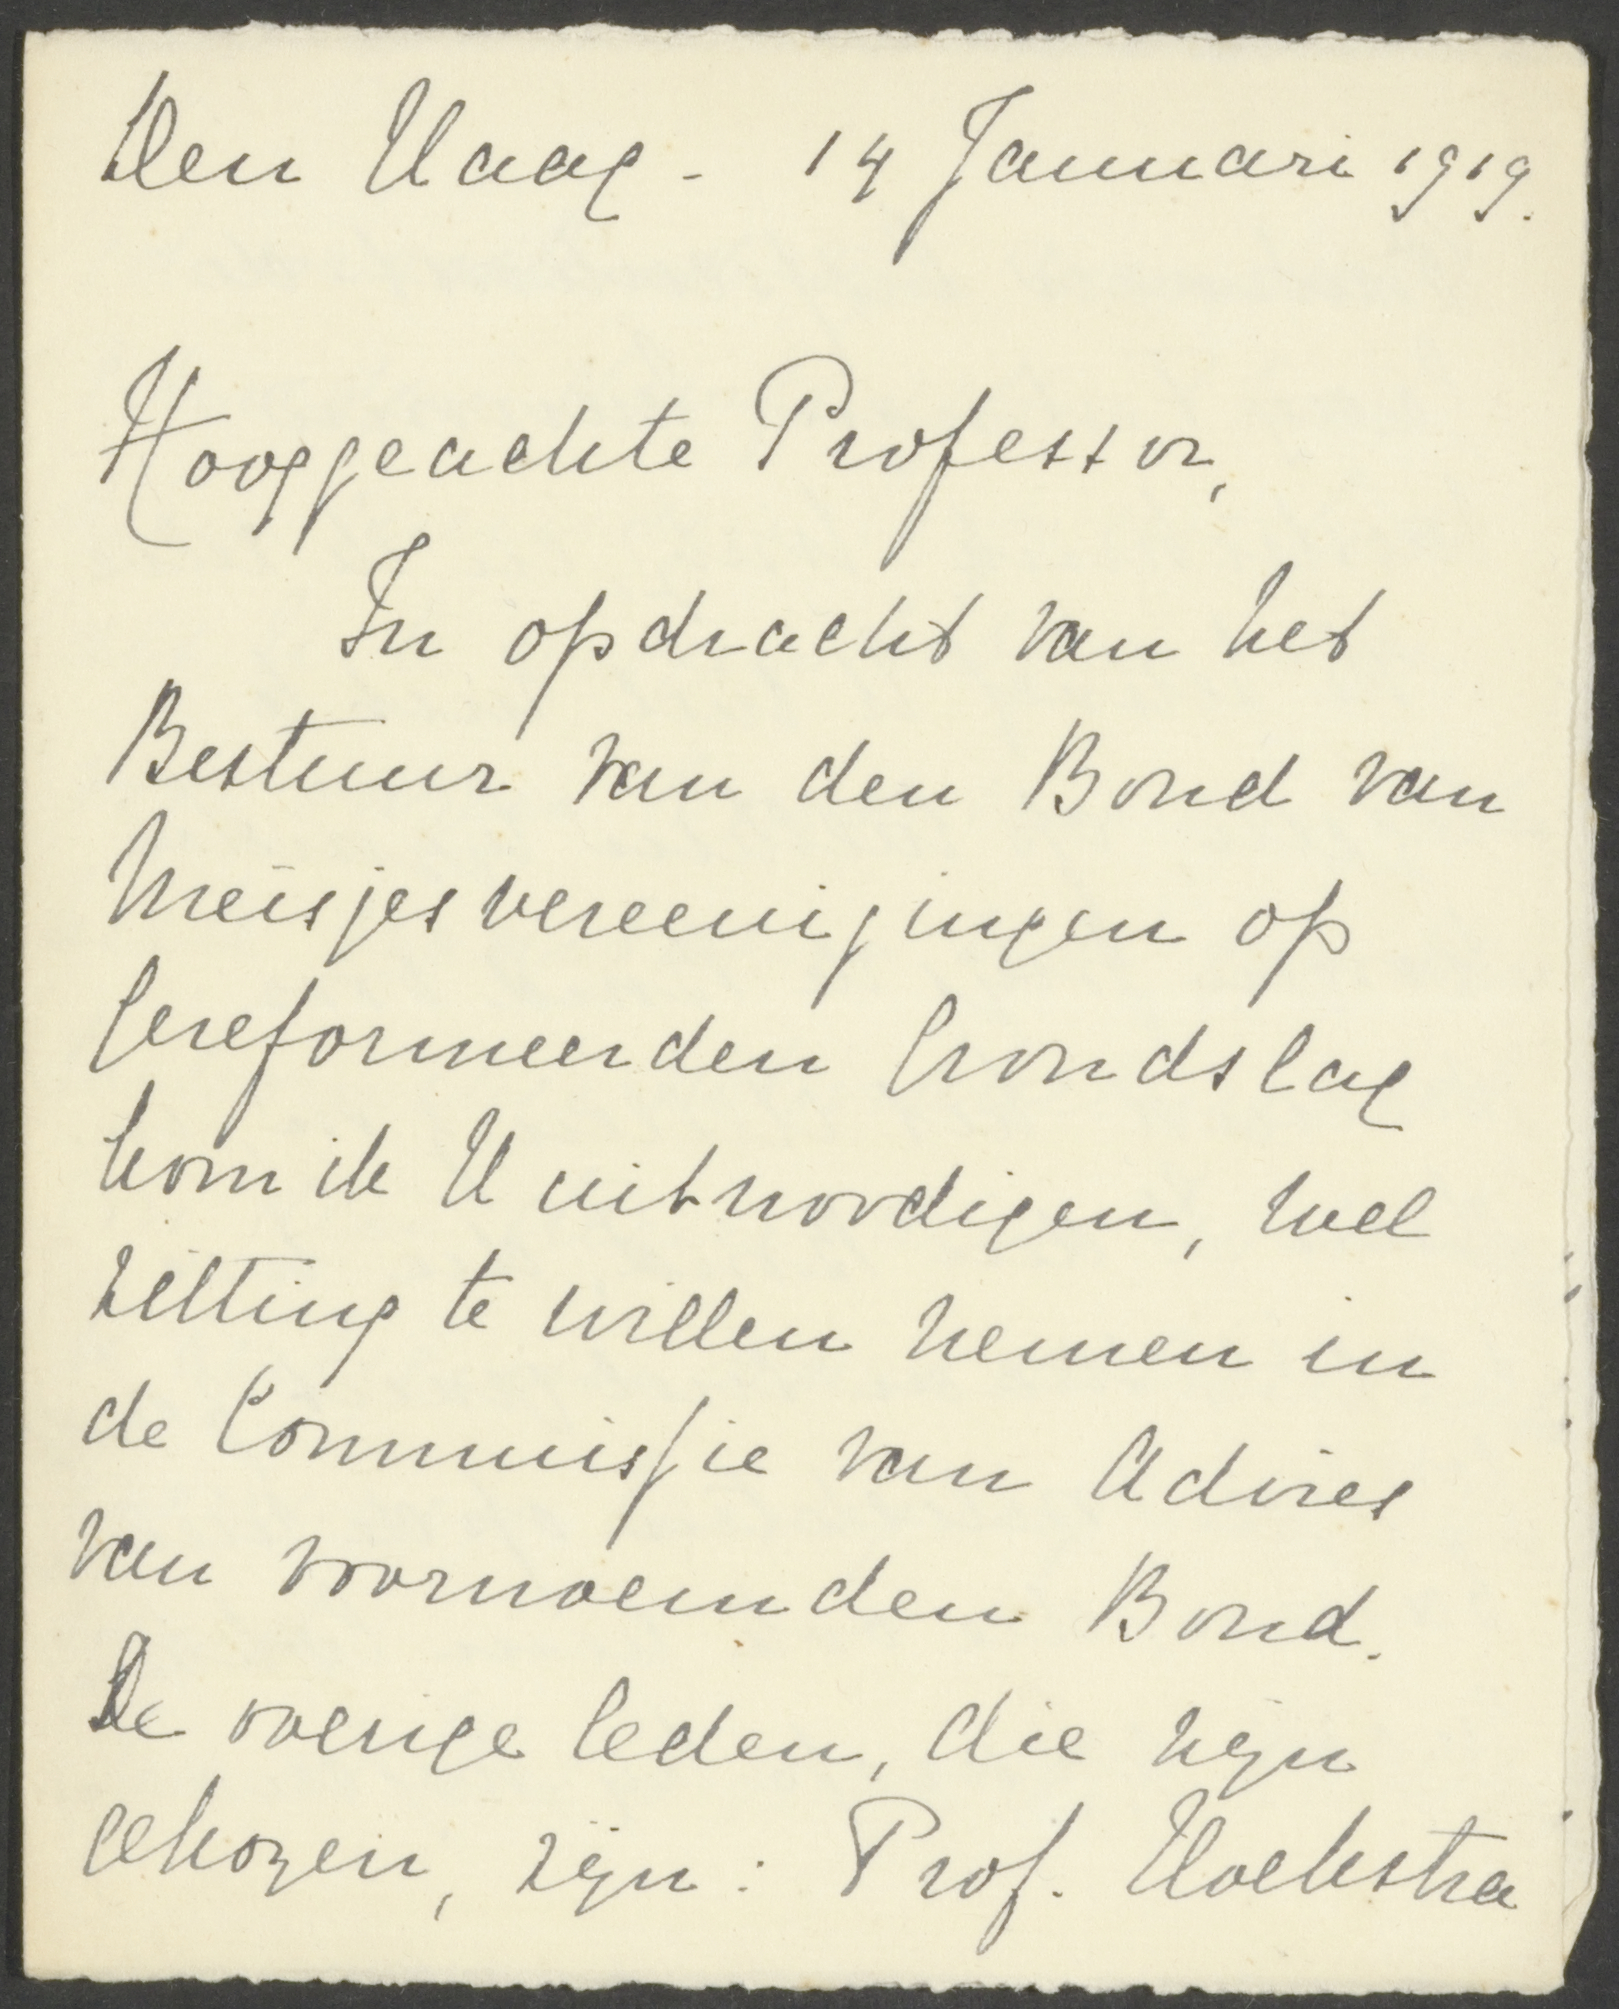 Den Haag - 14 Januari 1919.
Hooggeachte Professor,
In opdracht van het
Bestuur van den Bond van
Meisjesvereenigingen op
Gereformeerden Grondslag
kom ik U uitnoodigen, wel
zitting te willen nemen in
de Commissie van Advies
van voornoemden Bond.
De overige leden, die zijn
gekozen, zijn: Prof. Hoekstra